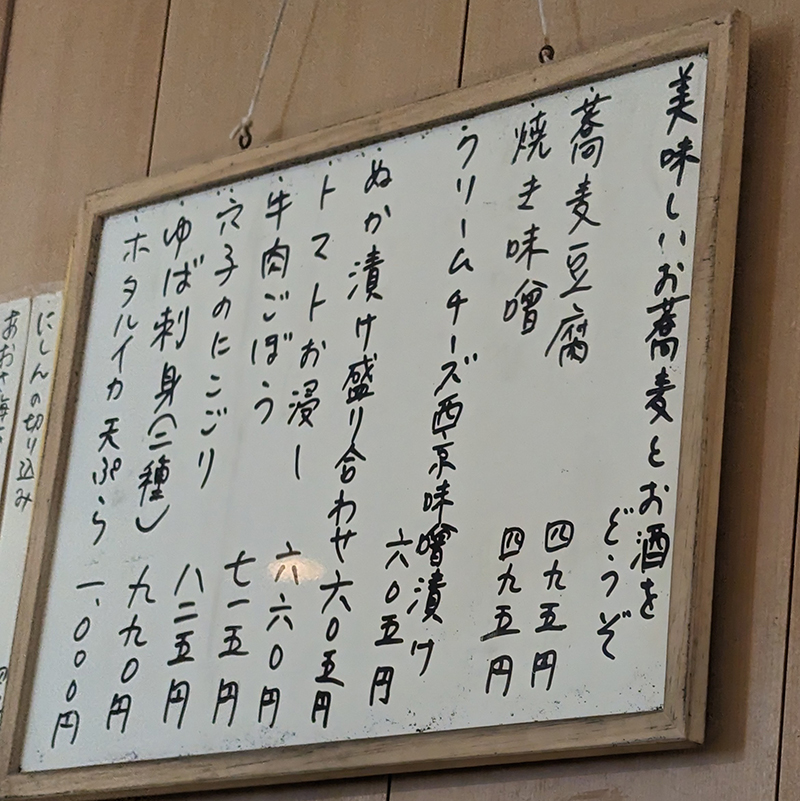 美味しいお蕎麦とお酒を
どうぞ
蕎麦豆腐 四九五円
焼き味噌 四九五円
クリームチーズ西京味噌漬け
六〇五円
ぬか漬け盛り合わせ 六〇五円
トマトお浸し 六六〇円
牛肉ごぼう 七一五円
穴子のにこごり 八二五円
ゆば刺身(二種) 九九〇円
ホタルイカ天ぷら 一、〇〇〇円
にしんの切り込み